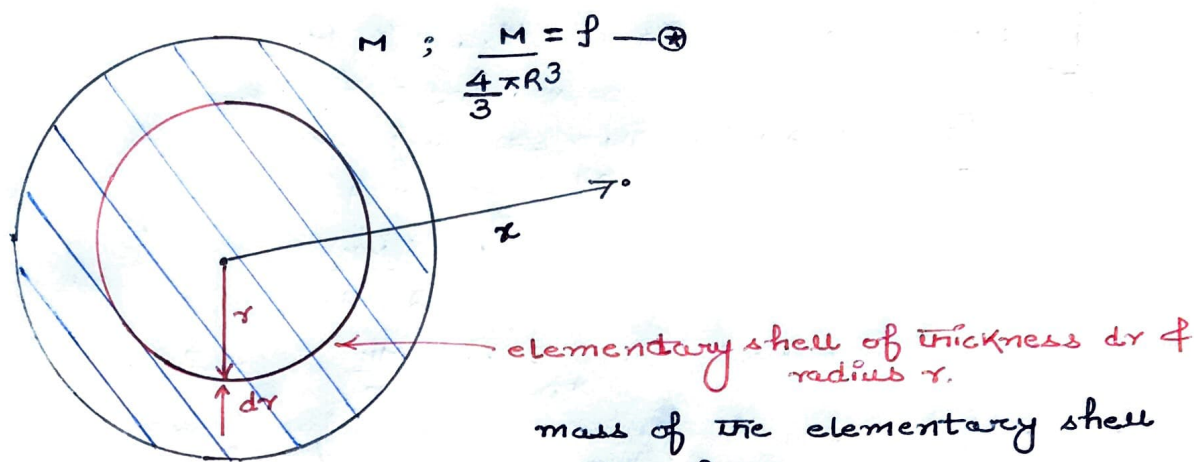 M ; M/(4/3 πR³) = ρ —⊛
x
r
dr
elementary shell of thickness dr &
radius r.
mass of the elementary shell